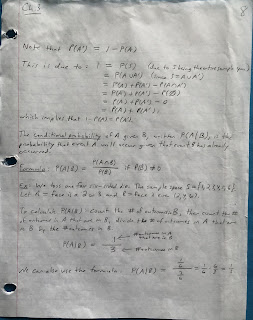 Ch. 3
8
Note that P(A') = 1 - P(A)
This is due to: 1 = P(S) (due to S being the entire sample space)
= P(A∪A') (since S = A∪A')
= P(A) + P(A') - P(A∩A')
= P(A) + P(A') - P(∅)
= P(A) + P(A') - 0
= P(A) + P(A'),
which implies that 1 - P(A) = P(A').
The conditional probability of A given B, written P(A|B), is the
probability that event A will occur given that event B has already
occurred.
Formula: P(A|B) = P(A∩B) / P(B) if P(B) ≠ 0
Ex: We toss one fair six-sided die. The sample space S = {1,2,3,4,5,6}.
Let A = face is a 2 or 3 and B = face is even (2,4,6).
To calculate P(A|B) - count the # of outcomes in B, then count the #
in A that are in B, divide the # of outcomes in A that are
in B by the # outcomes in B.
P(A|B) = 1 / 3 ← # outcomes in B
We can also use the formula. P(A|B) =